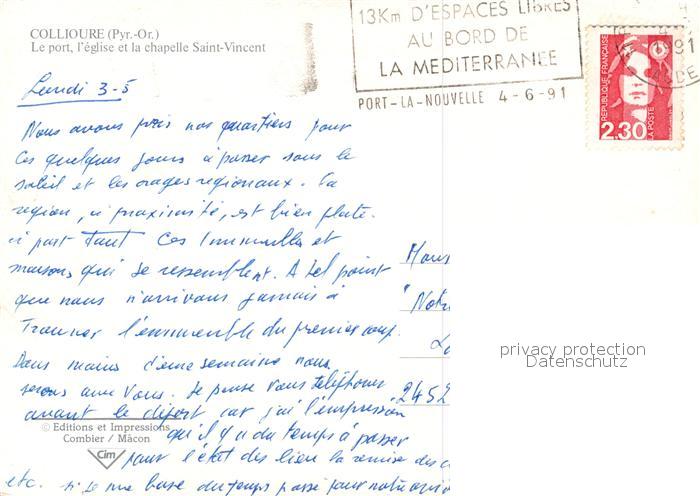 COLLIOURE (Pyr.-Or.)
Le port, l'église et la chapelle Saint-Vincent
13Km D'ESPACES LIBRES
AU BORD DE
LA MEDITERRANEE
PORT-LA-NOUVELLE 4-6-91
4
91
AUDE
REPUBLIQUE FRANÇAISE
LA POSTE
2.30
Lundi 3-5
Nous avons pris nos quartiers pour
Ces quelques jours à passer sous le
soleil et les orages regionaux. La
region, à proximité, est bien plate.
à part tout Ces Immeubles et
maisons qui se ressemblent. A tel point
que nous n'arrivons jamais à
Trouver l'immeuble du premier coup.
Dans moins d'une semaine nous
serons avec Vous. Je pense vous téléphoner
avant le départ car j'ai l'impression
qu'il y a du temps à passer
pour l'état des lieux la remise des c
etc. si je me base du temps passé pour notre
Mons
"Notr
2452
privacy protection
Datenschutz
© Editions et Impressions
Combier / Mâcon
Cim